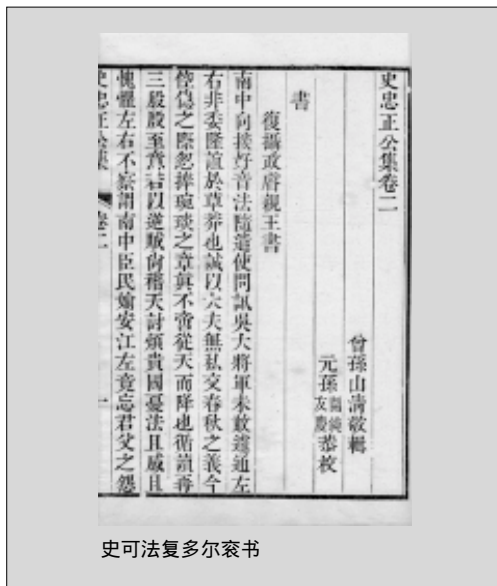 史忠正公集卷二
曾孫山清敬輯
元孫開純友慶恭校
書
復攝政睿親王書
南中向接好音法隨遣使問訊吳大將軍未敢遽通左
右非委隆誼於草莽也誠以大夫無私交春秋之義今
倥傯之際忽捧琬琰之章真不啻從天而降也循讀再
三殷殷至意若以逆賊尚稽天討煩貴國憂法且感且
愧懼左右不察謂南中臣民媮安江左竟忘君父之怨
史忠正公集 卷二 一
史可法复多尔衮书